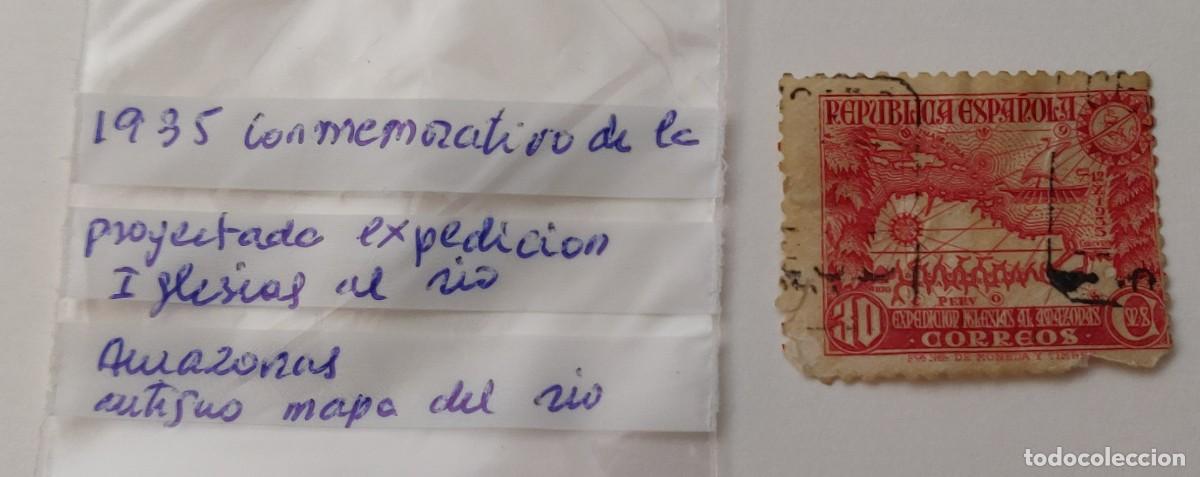 1935 Conmemorativo de la
proyectada expedicion
Iglesias al rio
Amazonas
antiguo mapa del rio
REPUBLICA ESPAÑOLA
12 X 1935
PERV
30
EXPEDICION IGLESIAS AL AMAZONAS
CTMS
CORREOS
DE MONEDA Y TIMBRE
todocoleccion